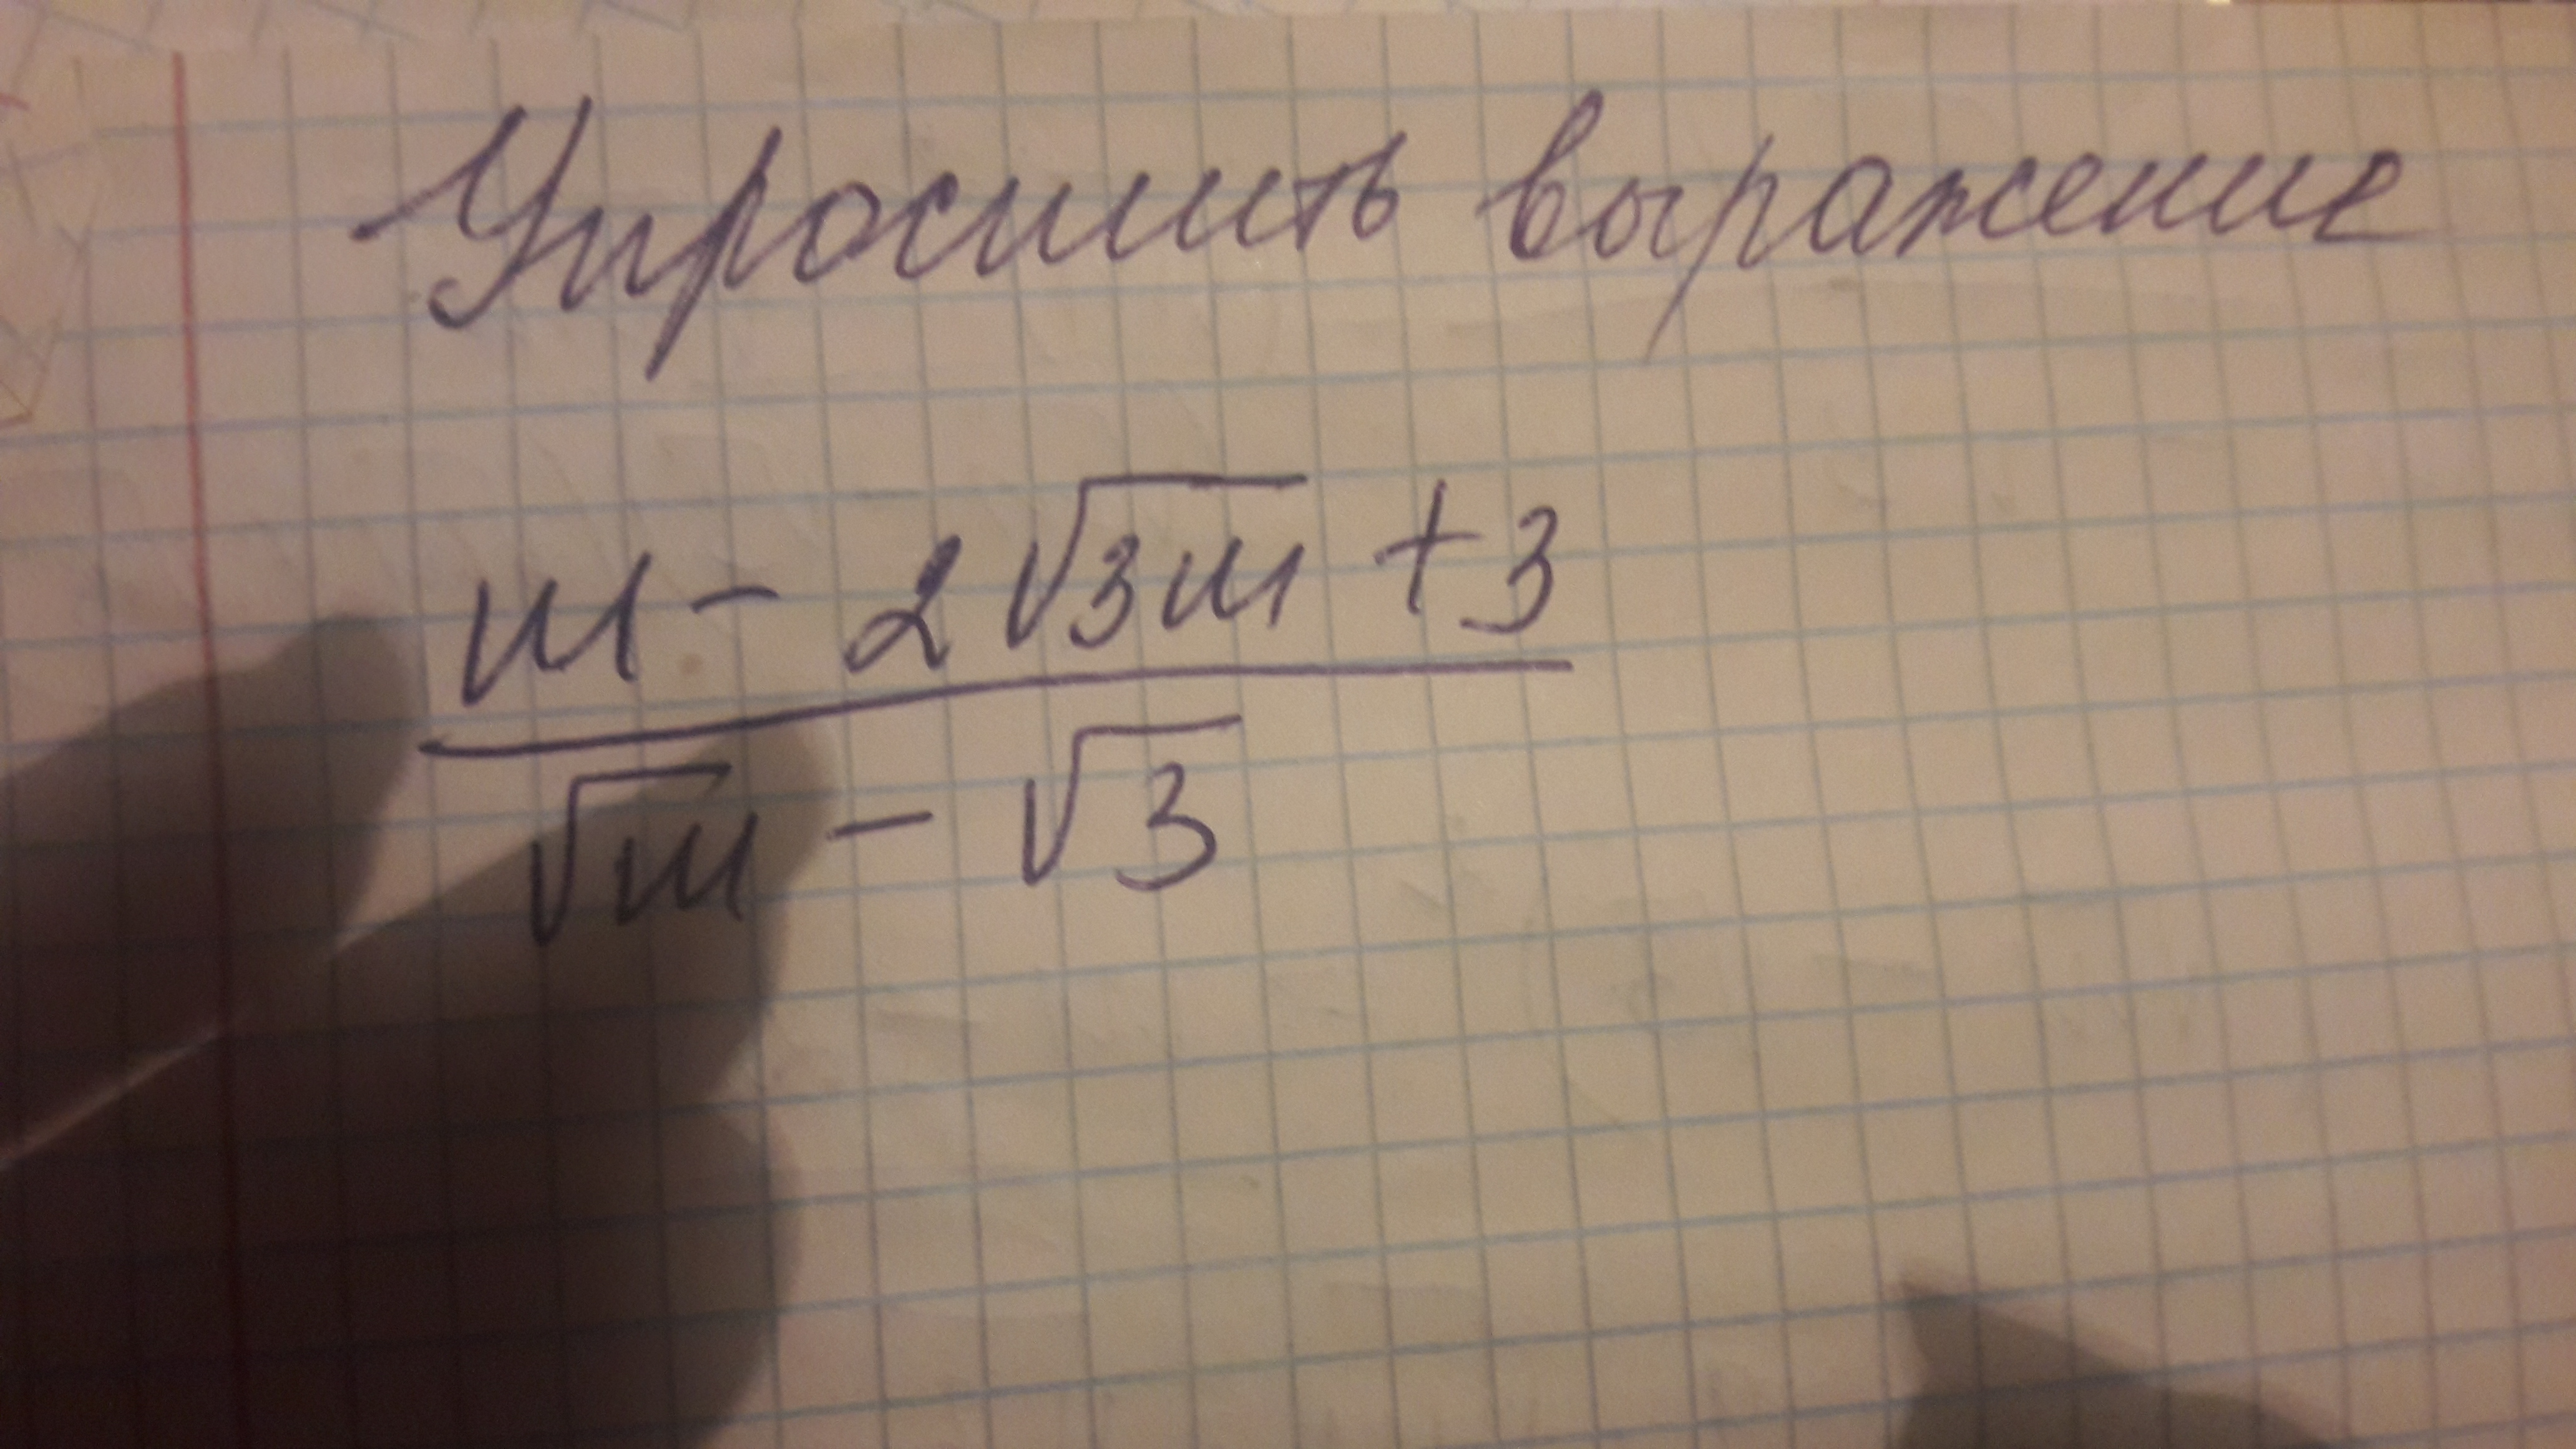 Упростить выражение
m - 2√3m + 3
√m - √3